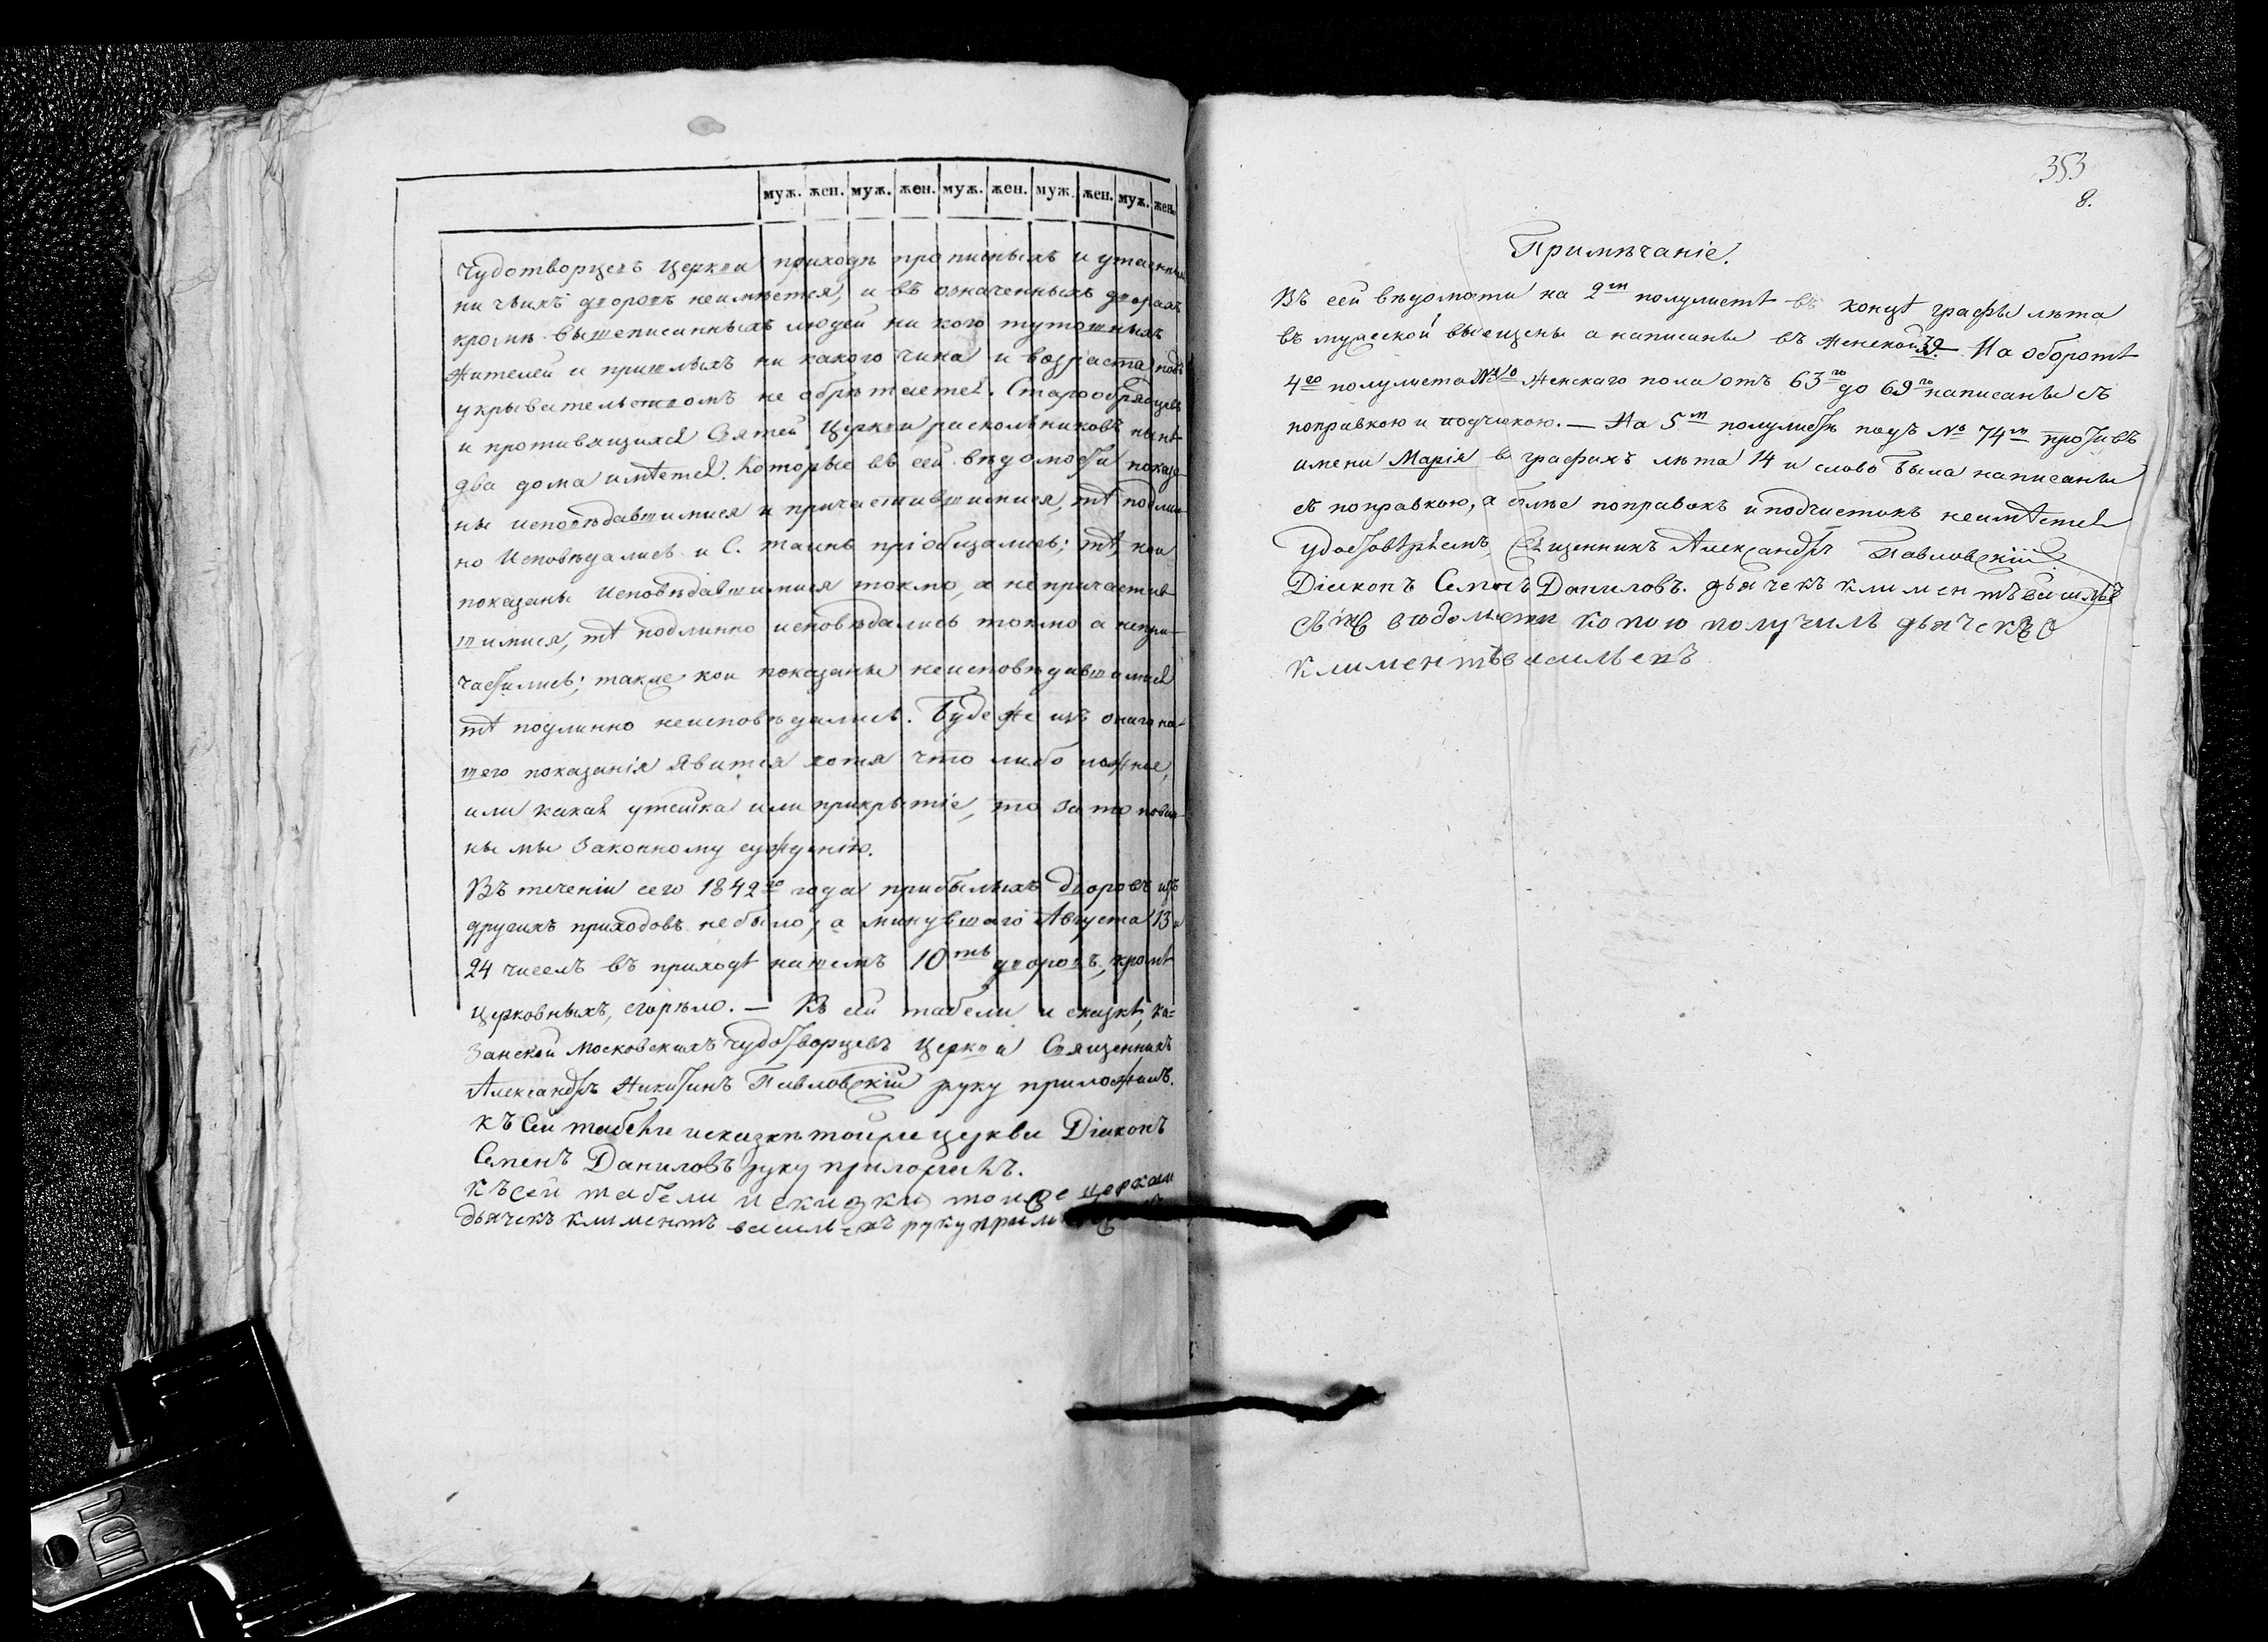 муж. жен. муж. жен. муж. жен. муж. жен. муж. жен.
Чудотворцевъ Церкви приходѣ прописныхъ и утаенныхъ
ни чьихъ дворовъ неимѣется, и въ означенныхъ дворахъ
кромѣ вышеписанныхъ людей ни кого тутошныхъ
жителей и пришлыхъ ни какого чина и возраста подъ
укрывательствомъ не обрѣтается. Старообрядцевъ
и противящихся Святей Церкви раскольниковъ нынѣ
два дома имѣется. Которые въ сей вѣдомости показа-
ны исповѣдавшимися и причастившимися, тѣ подлин-
но Исповѣдались и С. таинъ пріобщались; тѣ, кои
показаны Исповѣдавшимися токмо, а непричастив-
шимися, тѣ подлинно исповѣдались токмо а непри-
частились; также кои показаны неисповѣдавшимися
тѣ подлинно неисповѣдались. Буде же изъ онаго на-
шего показанія явится хотя что либо ложное,
или какая утайка или прикрытіе, то за то повин-
ны мы Законному сужденію.
Въ теченіи сего 1842го года прибылыхъ дворовъ изъ
другихъ приходовъ небыло, а минувшаго Августа 13 и
24 чиселъ въ приходѣ нашемъ 10ть дворовъ, кромѣ
церковныхъ, сгорѣло. — Къ сей табели и сказкѣ, Ка-
занской Московскихъ Чудотворцевъ Церкви Священникъ
Александръ Никитинъ Павловскій руку приложилъ.
Къ Сей табели исказкѣ тойже церкви Діаконъ
Семенъ Даниловъ руку приложилъ.
Къ сей табели и скаски тойже церкви
дьячекъ климентъ васильевъ руку
353
8.
Примѣчаніе.
Въ сей вѣдомости на 2м полулистѣ въ концѣ графы лѣта
въ мужеской вычищены а написаны въ женской 39. На оборотѣ
4го полулиста № женскаго пола отъ 63го до 69го написаны съ
поправкою и подчискою. — На 5м полулистѣ подъ № 74м противъ
имени Марія в графахъ лѣта 14 и слово была написаны
съ поправкою, а болѣе поправокъ и подчистокъ неимѣется
удостовѣряемъ, Священникъ Александръ Павловскій.
Діаконъ Семенъ Даниловъ. дьячекъ климентъ васильевъ
вѣдомости копою получилъ дьячекъ
Климентъ васильевъ